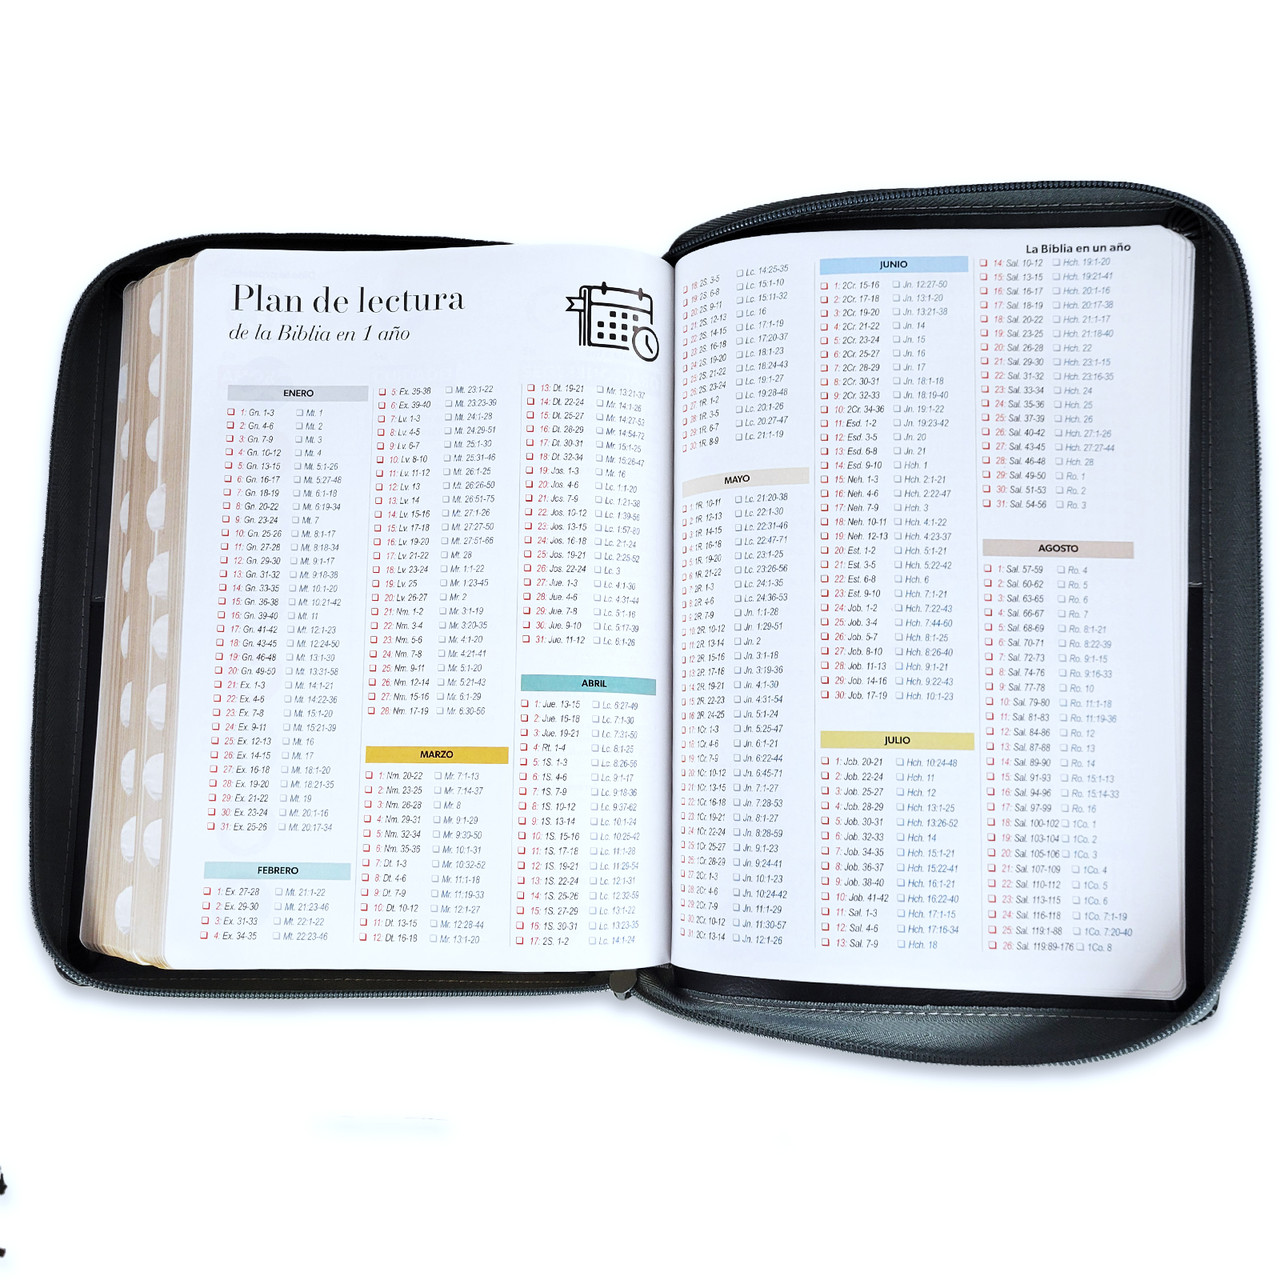 Plan de lectura
de la Biblia en 1 año
ENERO
1: Gn. 1-3 Mt. 1
2: Gn. 4-6 Mt. 2
3: Gn. 7-9 Mt. 3
4: Gn. 10-12 Mt. 4
5: Gn. 13-15 Mt. 5:1-26
6: Gn. 16-17 Mt. 5:27-48
7: Gn. 18-19 Mt. 6:1-18
8: Gn. 20-22 Mt. 6:19-34
9: Gn. 23-24 Mt. 7
10: Gn. 25-26 Mt. 8:1-17
11: Gn. 27-28 Mt. 8:18-34
12: Gn. 29-30 Mt. 9:1-17
13: Gn. 31-32 Mt. 9:18-38
14: Gn. 33-35 Mt. 10:1-20
15: Gn. 36-38 Mt. 10:21-42
16: Gn. 39-40 Mt. 11
17: Gn. 41-42 Mt. 12:1-23
18: Gn. 43-45 Mt. 12:24-50
19: Gn. 46-48 Mt. 13:1-30
20: Gn. 49-50 Mt. 13:31-58
21: Ex. 1-3 Mt. 14:1-21
22: Ex. 4-6 Mt. 14:22-36
23: Ex. 7-8 Mt. 15:1-20
24: Ex. 9-11 Mt. 15:21-39
25: Ex. 12-13 Mt. 16
26: Ex. 14-15 Mt. 17
27: Ex. 16-18 Mt. 18:1-20
28: Ex. 19-20 Mt. 18:21-35
29: Ex. 21-22 Mt. 19
30: Ex. 23-24 Mt. 20:1-16
31: Ex. 25-26 Mt. 20:17-34
FEBRERO
1: Ex. 27-28 Mt. 21:1-22
2: Ex. 29-30 Mt. 21:23-46
3: Ex. 31-33 Mt. 22:1-22
4: Ex. 34-35 Mt. 22:23-46
5: Ex. 36-38 Mt. 23:1-22
6: Ex. 39-40 Mt. 23:23-39
7: Lv. 1-3 Mt. 24:1-28
8: Lv. 4-5 Mt. 24:29-51
9: Lv. 6-7 Mt. 25:1-30
10: Lv. 8-10 Mt. 25:31-46
11: Lv. 11-12 Mt. 26:1-25
12: Lv. 13 Mt. 26:26-50
13: Lv. 14 Mt. 26:51-75
14: Lv. 15-16 Mt. 27:1-26
15: Lv. 17-18 Mt. 27:27-50
16: Lv. 19-20 Mt. 27:51-66
17: Lv. 21-22 Mt. 28
18: Lv. 23-24 Mr. 1:1-22
19: Lv. 25 Mr. 1:23-45
20: Lv. 26-27 Mr. 2
21: Nm. 1-2 Mr. 3:1-19
22: Nm. 3-4 Mr. 3:20-35
23: Nm. 5-6 Mr. 4:1-20
24: Nm. 7-8 Mr. 4:21-41
25: Nm. 9-11 Mr. 5:1-20
26: Nm. 12-14 Mr. 5:21-42
27: Nm. 15-16 Mr. 6:1-29
28: Nm. 17-19 Mr. 6:30-56
MARZO
1: Nm. 20-22 Mr. 7:1-13
2: Nm. 23-25 Mr. 7:14-37
3: Nm. 26-28 Mr. 8
4: Nm. 29-31 Mr. 9:1-29
5: Nm. 32-34 Mr. 9:30-50
6: Nm. 35-36 Mr. 10:1-31
7: Dt. 1-3 Mr. 10:32-52
8: Dt. 4-6 Mr. 11:1-18
9: Dt. 7-9 Mr. 11:19-33
10: Dt. 10-12 Mr. 12:1-27
11: Dt. 13-15 Mr. 12:28-44
12: Dt. 16-18 Mr. 13:1-20
13: Dt. 19-21 Mr. 13:21-37
14: Dt. 22-24 Mr. 14:1-26
15: Dt. 25-27 Mr. 14:27-53
16: Dt. 28-29 Mr. 14:54-72
17: Dt. 30-31 Mr. 15:1-25
18: Dt. 32-34 Mr. 15:26-47
19: Jos. 1-3 Mr. 16
20: Jos. 4-6 Lc. 1:1-20
21: Jos. 7-9 Lc. 1:21-38
22: Jos. 10-12 Lc. 1:39-56
23: Jos. 13-15 Lc. 1:57-80
24: Jos. 16-18 Lc. 2:1-24
25: Jos. 19-21 Lc. 2:25-52
26: Jos. 22-24 Lc. 3
27: Jue. 1-3 Lc. 4:1-30
28: Jue. 4-6 Lc. 4:31-44
29: Jue. 7-8 Lc. 5:1-16
30: Jue. 9-10 Lc. 5:17-39
31: Jue. 11-12 Lc. 6:1-26
ABRIL
1: Jue. 13-15 Lc. 6:27-49
2: Jue. 16-18 Lc. 7:1-30
3: Jue. 19-21 Lc. 7:31-50
4: Rt. 1-4 Lc. 8:1-25
5: 1S. 1-3 Lc. 8:26-56
6: 1S. 4-6 Lc. 9:1-17
7: 1S. 7-9 Lc. 9:18-36
8: 1S. 10-12 Lc. 9:37-62
9: 1S. 13-14 Lc. 10:1-24
10: 1S. 15-16 Lc. 10:25-42
11: 1S. 17-18 Lc. 11:1-28
12: 1S. 19-21 Lc. 11:29-54
13: 1S. 22-24 Lc. 12:1-31
14: 1S. 25-26 Lc. 12:32-59
15: 1S. 27-29 Lc. 13:1-22
16: 1S. 30-31 Lc. 13:23-35
17: 2S. 1-2 Lc. 14:1-24
La Biblia en un año
18: 2S. 3-5 Lc. 14:25-35
19: 2S. 6-8 Lc. 15:1-10
20: 2S. 9-11 Lc. 15:11-32
21: 2S. 12-13 Lc. 16
22: 2S. 14-15 Lc. 17:1-19
23: 2S. 16-18 Lc. 17:20-37
24: 2S. 19-20 Lc. 18:1-23
25: 2S. 21-22 Lc. 18:24-43
26: 2S. 23-24 Lc. 19:1-27
27: 1R. 1-2 Lc. 19:28-48
28: 1R. 3-5 Lc. 20:1-26
29: 1R. 6-7 Lc. 20:27-47
30: 1R. 8-9 Lc. 21:1-19
MAYO
1: 1R. 10-11 Lc. 21:20-38
2: 1R. 12-13 Lc. 22:1-30
3: 1R. 14-15 Lc. 22:31-46
4: 1R. 16-18 Lc. 22:47-71
5: 1R. 19-20 Lc. 23:1-25
6: 1R. 21-22 Lc. 23:26-56
7: 2R. 1-3 Lc. 24:1-35
8: 2R. 4-6 Lc. 24:36-53
9: 2R. 7-9 Jn. 1:1-28
10: 2R. 10-12 Jn. 1:29-51
11: 2R. 13-14 Jn. 2
12: 2R. 15-16 Jn. 3:1-18
13: 2R. 17-18 Jn. 3:19-36
14: 2R. 19-21 Jn. 4:1-30
15: 2R. 22-23 Jn. 4:31-54
16: 2R. 24-25 Jn. 5:1-24
17: 1Cr. 1-3 Jn. 5:25-47
18: 1Cr. 4-6 Jn. 6:1-21
19: 1Cr. 7-9 Jn. 6:22-44
20: 1Cr. 10-12 Jn. 6:45-71
21: 1Cr. 13-15 Jn. 7:1-27
22: 1Cr. 16-18 Jn. 7:28-53
23: 1Cr. 19-21 Jn. 8:1-27
24: 1Cr. 22-24 Jn. 8:28-59
25: 1Cr. 25-27 Jn. 9:1-23
26: 1Cr. 28-29 Jn. 9:24-41
27: 2Cr. 1-3 Jn. 10:1-23
28: 2Cr. 4-6 Jn. 10:24-42
29: 2Cr. 7-9 Jn. 11:1-29
30: 2Cr. 10-12 Jn. 11:30-57
31: 2Cr. 13-14 Jn. 12:1-26
JUNIO
1: 2Cr. 15-16 Jn. 12:27-50
2: 2Cr. 17-18 Jn. 13:1-20
3: 2Cr. 19-20 Jn. 13:21-38
4: 2Cr. 21-22 Jn. 14
5: 2Cr. 23-24 Jn. 15
6: 2Cr. 25-27 Jn. 16
7: 2Cr. 28-29 Jn. 17
8: 2Cr. 30-31 Jn. 18:1-18
9: 2Cr. 32-33 Jn. 18:19-40
10: 2Cr. 34-36 Jn. 19:1-22
11: Esd. 1-2 Jn. 19:23-42
12: Esd. 3-5 Jn. 20
13: Esd. 6-8 Jn. 21
14: Esd. 9-10 Hch. 1
15: Neh. 1-3 Hch. 2:1-21
16: Neh. 4-6 Hch. 2:22-47
17: Neh. 7-9 Hch. 3
18: Neh. 10-11 Hch. 4:1-22
19: Neh. 12-13 Hch. 4:23-37
20: Est. 1-2 Hch. 5:1-21
21: Est. 3-5 Hch. 5:22-42
22: Est. 6-8 Hch. 6
23: Est. 9-10 Hch. 7:1-21
24: Job. 1-2 Hch. 7:22-43
25: Job. 3-4 Hch. 7:44-60
26: Job. 5-7 Hch. 8:1-25
27: Job. 8-10 Hch. 8:26-40
28: Job. 11-13 Hch. 9:1-21
29: Job. 14-16 Hch. 9:22-43
30: Job. 17-19 Hch. 10:1-23
JULIO
1: Job. 20-21 Hch. 10:24-48
2: Job. 22-24 Hch. 11
3: Job. 25-27 Hch. 12
4: Job. 28-29 Hch. 13:1-25
5: Job. 30-31 Hch. 13:26-52
6: Job. 32-33 Hch. 14
7: Job. 34-35 Hch. 15:1-21
8: Job. 36-37 Hch. 15:22-41
9: Job. 38-40 Hch. 16:1-21
10: Job. 41-42 Hch. 16:22-40
11: Sal. 1-3 Hch. 17:1-15
12: Sal. 4-6 Hch. 17:16-34
13: Sal. 7-9 Hch. 18
14: Sal. 10-12 Hch. 19:1-20
15: Sal. 13-15 Hch. 19:21-41
16: Sal. 16-17 Hch. 20:1-16
17: Sal. 18-19 Hch. 20:17-38
18: Sal. 20-22 Hch. 21:1-17
19: Sal. 23-25 Hch. 21:18-40
20: Sal. 26-28 Hch. 22
21: Sal. 29-30 Hch. 23:1-15
22: Sal. 31-32 Hch. 23:16-35
23: Sal. 33-34 Hch. 24
24: Sal. 35-36 Hch. 25
25: Sal. 37-39 Hch. 26
26: Sal. 40-42 Hch. 27:1-26
27: Sal. 43-45 Hch. 27:27-44
28: Sal. 46-48 Hch. 28
29: Sal. 49-50 Ro. 1
30: Sal. 51-53 Ro. 2
31: Sal. 54-56 Ro. 3
AGOSTO
1: Sal. 57-59 Ro. 4
2: Sal. 60-62 Ro. 5
3: Sal. 63-65 Ro. 6
4: Sal. 66-67 Ro. 7
5: Sal. 68-69 Ro. 8:1-21
6: Sal. 70-71 Ro. 8:22-39
7: Sal. 72-73 Ro. 9:1-15
8: Sal. 74-76 Ro. 9:16-33
9: Sal. 77-78 Ro. 10
10: Sal. 79-80 Ro. 11:1-18
11: Sal. 81-83 Ro. 11:19-36
12: Sal. 84-86 Ro. 12
13: Sal. 87-88 Ro. 13
14: Sal. 89-90 Ro. 14
15: Sal. 91-93 Ro. 15:1-13
16: Sal. 94-96 Ro. 15:14-33
17: Sal. 97-99 Ro. 16
18: Sal. 100-102 1Co. 1
19: Sal. 103-104 1Co. 2
20: Sal. 105-106 1Co. 3
21: Sal. 107-109 1Co. 4
22: Sal. 110-112 1Co. 5
23: Sal. 113-115 1Co. 6
24: Sal. 116-118 1Co. 7:1-19
25: Sal. 119:1-88 1Co. 7:20-40
26: Sal. 119:89-176 1Co. 8